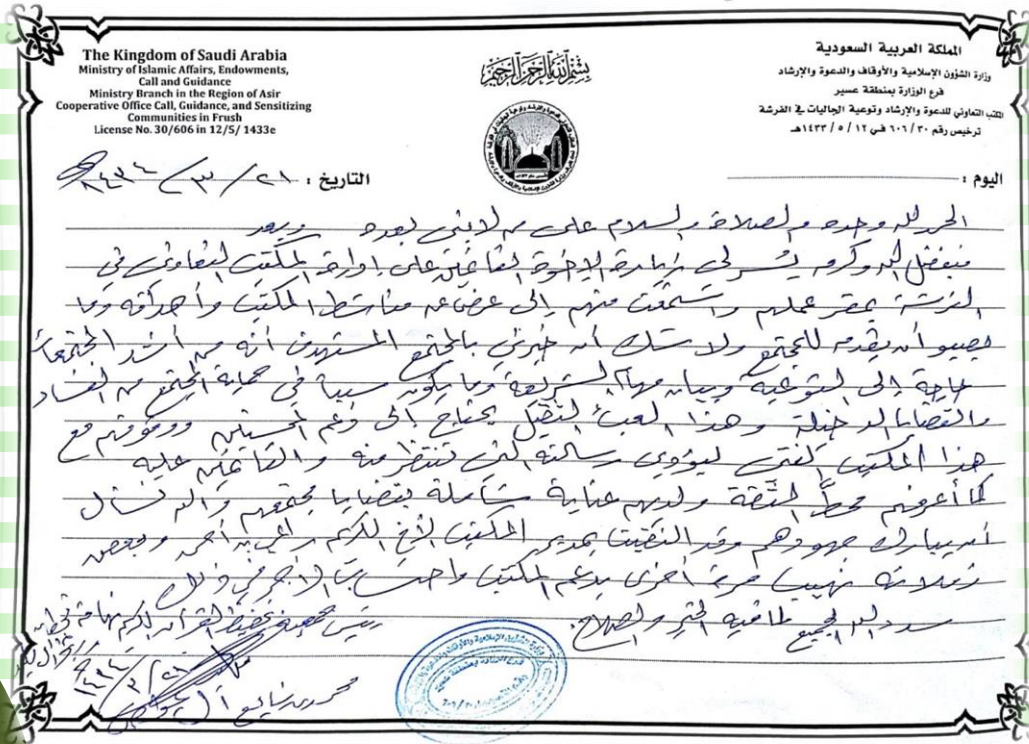 The Kingdom of Saudi Arabia
Ministry of Islamic Affairs, Endowments,
Call and Guidance
Ministry Branch in the Region of Asir
Cooperative Office Call, Guidance, and Sensitizing
Communities in Frush
License No. 30/606 in 12/5/ 1433e
بسم الله الرحمن الرحيم
المملكة العربية السعودية
وزارة الشؤون الإسلامية والأوقاف والدعوة والإرشاد
فرع الوزارة بمنطقة عسير
المكتب التعاوني للدعوة والإرشاد وتوعية الجاليات في الفرشة
ترخيص رقم ٦٠٦/٣٠ في ١٢ / ٥ / ١٤٣٣هـ
اليوم :
التاريخ : ٢١ / ٣ / ١٤٣٤هـ
الحمد لله وحده والصلاة والسلام على من لا نبي بعده وبعد
فبفضل الله وكرمه يسر لي زيارة الإخوة القائمين على إدارة المكتب التعاوني في
الفرشة بمقر عملهم واستمعت منهم إلى عرض عن مناشط المكتب وأهدافه وما
يصبو أن يقدمه للمجتمع ولا شك أن خبرتي بالمجتمع المستهدف أنه من أشد المجتمعات
حاجة إلى التوعية وبيان مهام الشريعة وما يكون سبباً في حماية المجتمع من الفساد
والقضايا الدخيلة وهذا العبء الثقيل يحتاج إلى دعم المحسنين ووقوفهم مع
هذا المكتب الفتي ليؤدي رسالته التي تنتظر منه والقائمين عليه
كما أعرفهم محط الثقة ولديهم عناية شاملة بقضايا مجتمعهم والله نسأل
أن يبارك جهودهم وقد التقيت بمدير المكتب الأخ الكريم أحمد وبعض
زملائه نهيب مرة أخرى بدعم المكتب واحتساب الأجر في ذلك
سدد الله الجميع لما فيه الخير والصلاح.
رئيس جمعية تحفيظ القرآن الكريم بتهامة قحطان
محمد بن شايع آل
٢١/٣/١٤٣٤